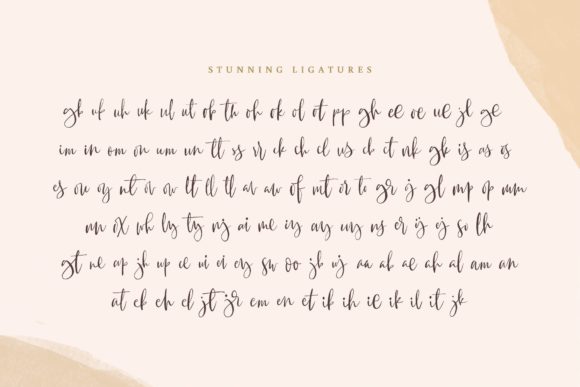 STUNNING LIGATURES
gb uf uh uk ul ut ob th oh ok ol ot pp gh ee oe ue jl ge
im in om on um un tt ss rr ck ch cl us ct nk gk is as os
es ou oy nt ov ow lt ll tl al aw of mt or to gr ij gl mp op mm
nn ox wh ly ty nj ai me iy ay uy ns er ij ej so lh
gt ne ap jh up ce ui ei ey sw oo jb uj aa ab ae ah al am an
at ck eh el jt jr em en et ik ih ie ik il it jk